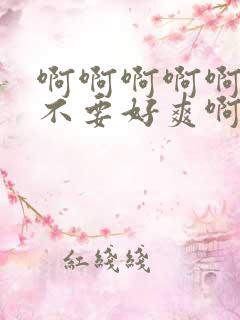 啊啊啊啊啊
不要好爽啊
紅綫綫